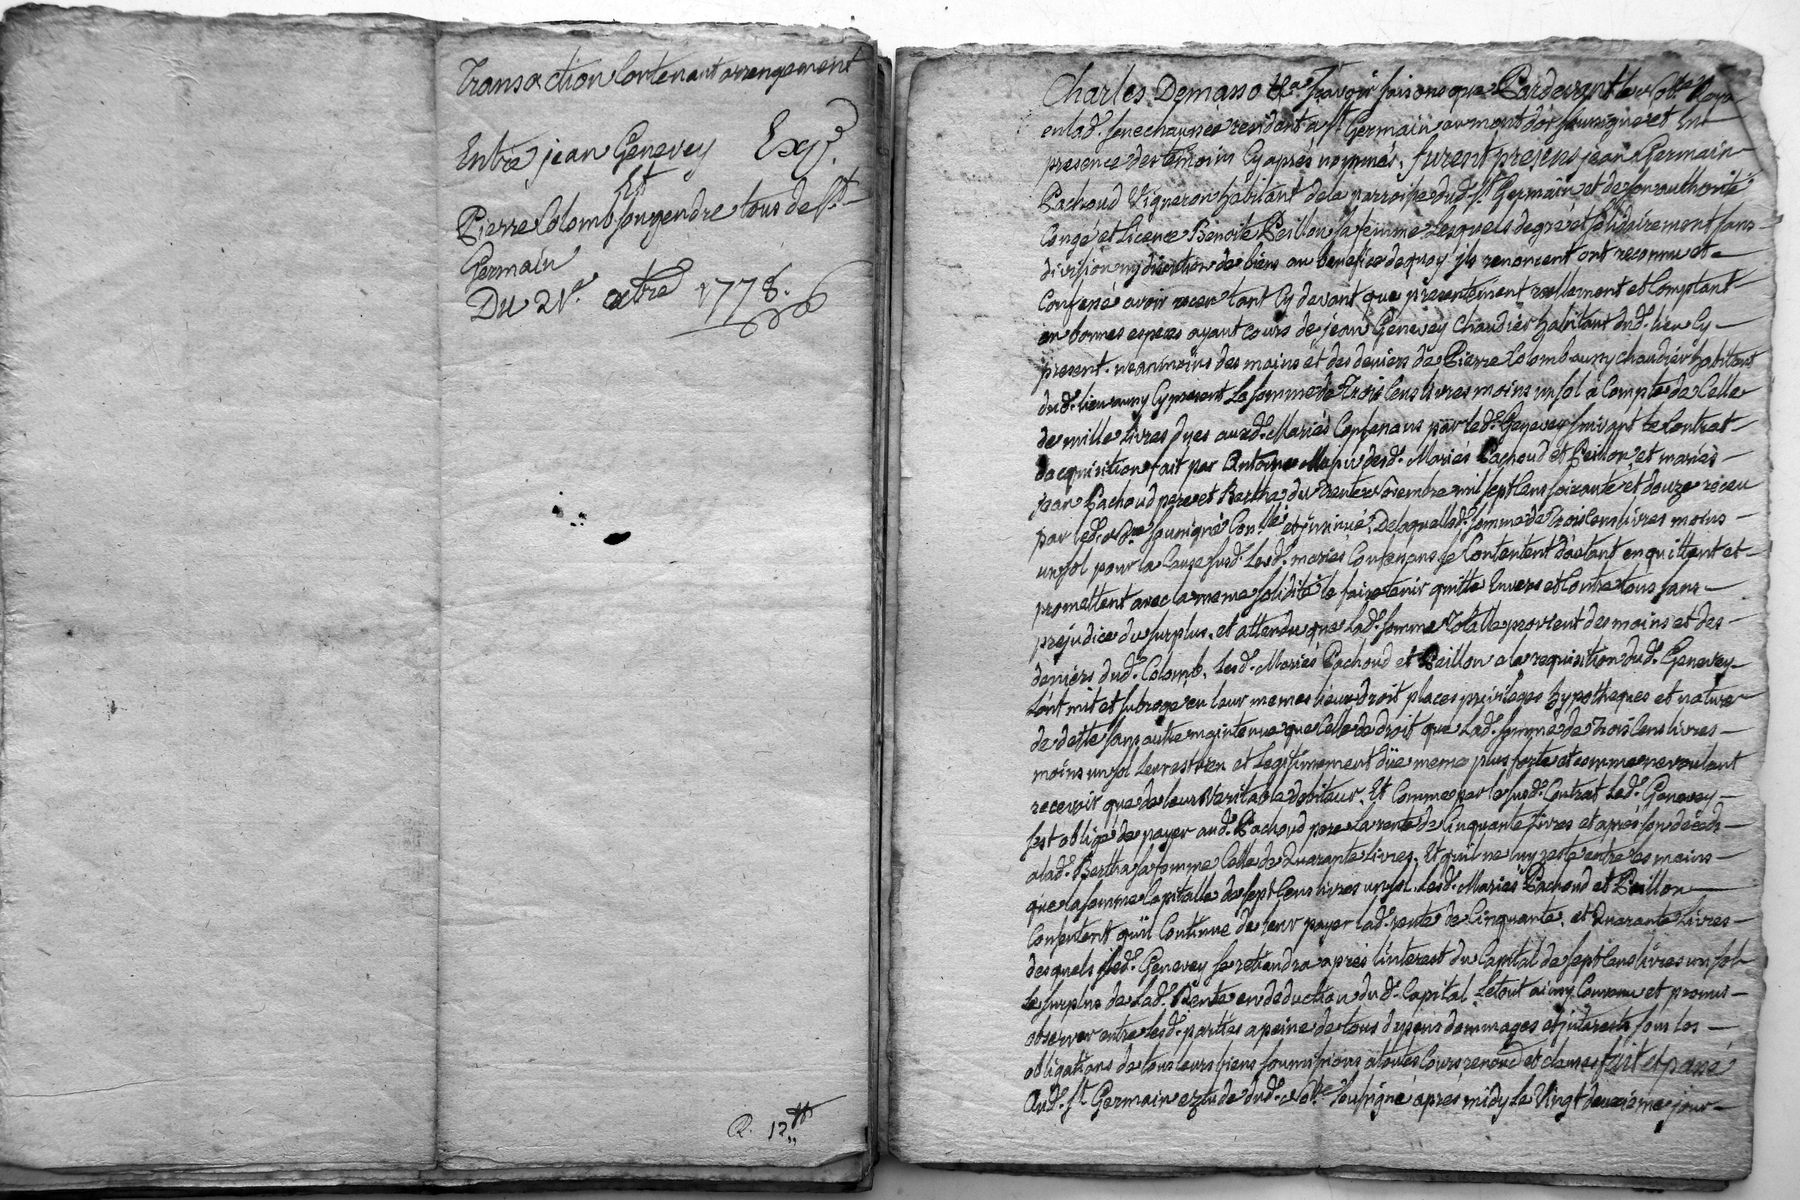 Transaction Contenant arrengement
Entre jean Genevey Expn.
Et
Pierre Colomb son gendre tous de St.
Germain
Du 21e. octbre 1778.
R. 12 tt
Charles Demasso &a. sçavoir faisons que Pardevant le Notre. Royal
en lad. senechaussee resident a St. Germain au mont d'or soussigné et En
presence des temoins Cy après nommés, furent presens jean Germain
Pachoud Vigneron habitant de la parroisse dud. St. Germain et de son authorité
Congé et Licence Benoite Peillon sa femme Lesquels de gré et solidairement sans
division ny discution de biens au benefice de quoy ils renoncent ont reconnu et
Confessé avoir receu tant Cy devant que présentement reellement et Comptant
en bonnes especes ayant cours de jean Genevey Chaudier habitant dud. lieu Cy
present. neanmoins des moins et des deniers de Pierre Colomb aussy chaudier habitant
dud. lieu aussy Cy present La somme de Trois Cens livres moins un sol a Compte de Celle
de mille Livres dues auxd. Mariés Confessans par led. Genevey suivant le Contrat
dacquisition fait par Antoine desd. Mariés Pachoud et Peillon, et mariés
jean Pachoud pere et Bertha du Trente mil sept Cens soixante et douze réceu
par led. Nre soussigné Conllé et insinué, De laquelle d. somme de Trois Cens livres moins
un sol pour la Cause susd. Lesd. mariés Confessans se Contentent d'autant en quittent et
promettent avec la meme solidité le faire tenir quitte Envers et Contre tous sans
prejudice du surplus, et attendu que Lad. somme Totalle provient des moins et des
deniers dud. Colomb, Lesd. Mariés Pachoud et Peillon a la requisition dud. Genevey
L'ont mit et subrogé en leur memes lieux droit places privileges hypotheques et nature
de dette sans autre maintenue que Celle de droit que Lad. somme de Trois Cens livres
moins un sol Leur est bien et Legitimement düe meme plus forte et comme ne voulant
recevoir que de leur Veritable debiteur. Et Comme par le susd. Contrat Led. Genevey
s'est obligé de payer aud. Pachoud pere La rente de Cinquante livres et après son décedz
a lad. Bertha sa femme Celle de Quarante Livres, Et qu'il ne luy reste entre ses mains
que la somme Capitalle de sept Cens livres un sol. Lesd. Mariés Pachoud et Peillon
Consentent qu'il Continue de leur payer lad. rente de Cinquante, et Quarante Livres
desquels led. Genevey se retiendra après l'interest du Capital de sept Cens livres un sol
Le surplus de Lad. Rente en deduction dud. Capital. Le tout ainsy Convenu et promis
observer entre lesd. parties a peine de tous depens dommages et interests sous les
obligations de tous leurs biens soumissions a toutes Cours renond. et clauses fait et passé
Aud. St. Germain etude dud. Notre. soussigné après midy Le Vingt deuxième jour